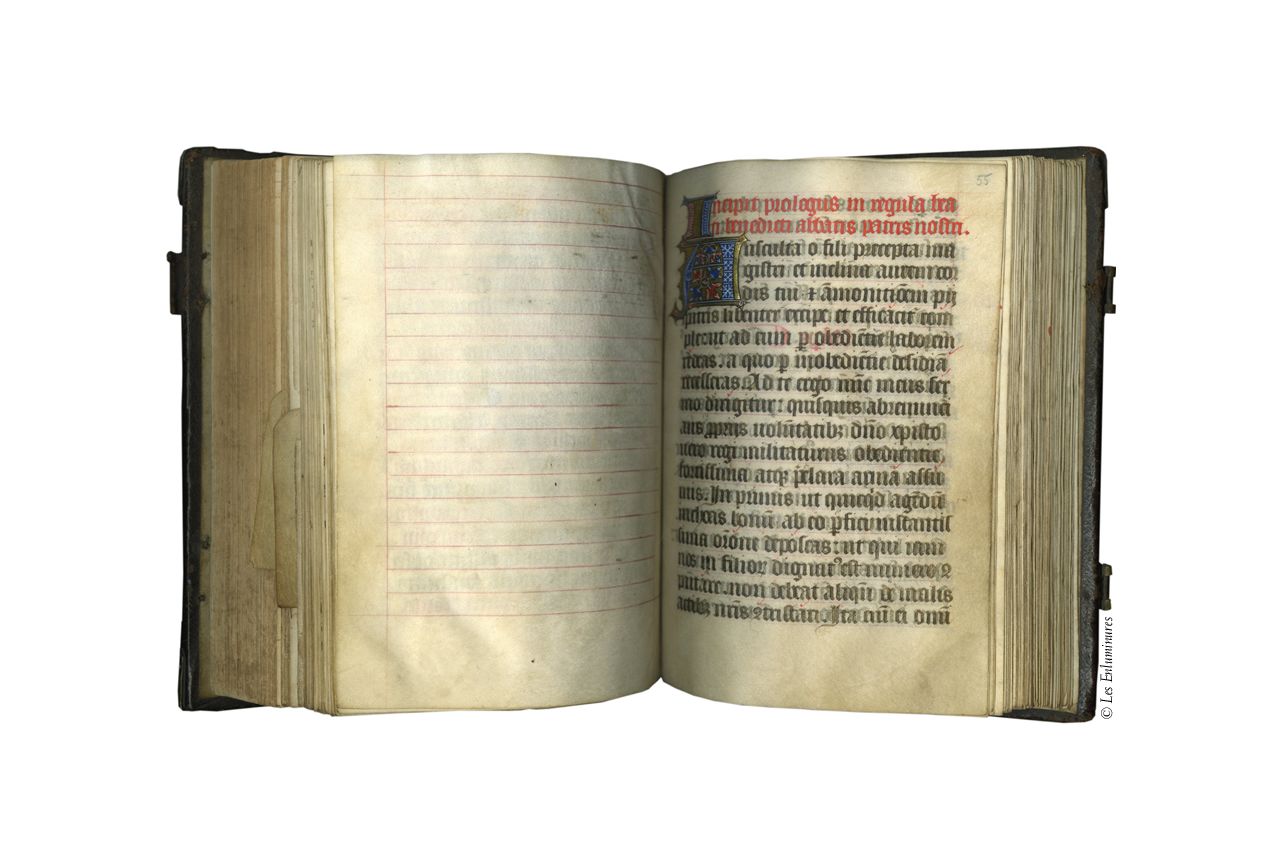 55
Incipit prologus in regula bea
ti benedicti abbatis patris nostri.
Ausculta o fili precepta ma
gistri et inclina aurem cor
dis tui & ãmonitionẽ pij
patris libenter excipe et efficacit com
ple: ut ad eum p obediencie laborem
redeas: a quo p inobediencie desidiã
recesseras. Ad te ergo nũc meus ser
mo dirigitur: quisquis abrenunci
ans propriis voluntatibꝫ dño xpisto
vero regi militaturus obediencie
fortissima atqꝫ p̃clara arma assu
mis. In primis ut quicqꝫ agẽdũ
inchoas bonũ ab eo p̱fici instantis
sima orõne deposcas: ut qui iam
nos in filioꝝ dignatꝰ est numero
putare non debeat aliqñ de malis
actibꝫ nr̃is ꝯtristari. Ita eni ei omi
© Les Enluminures